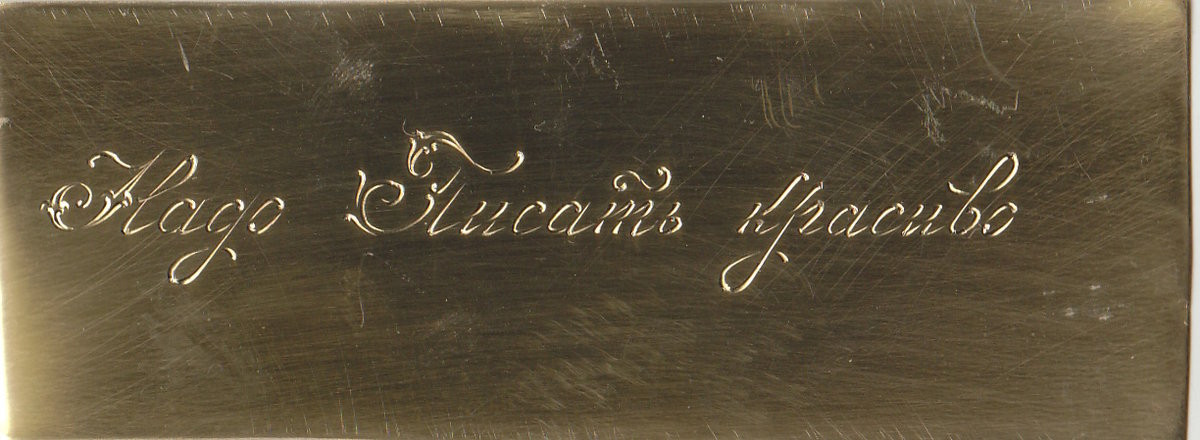 Надо Писать красиво